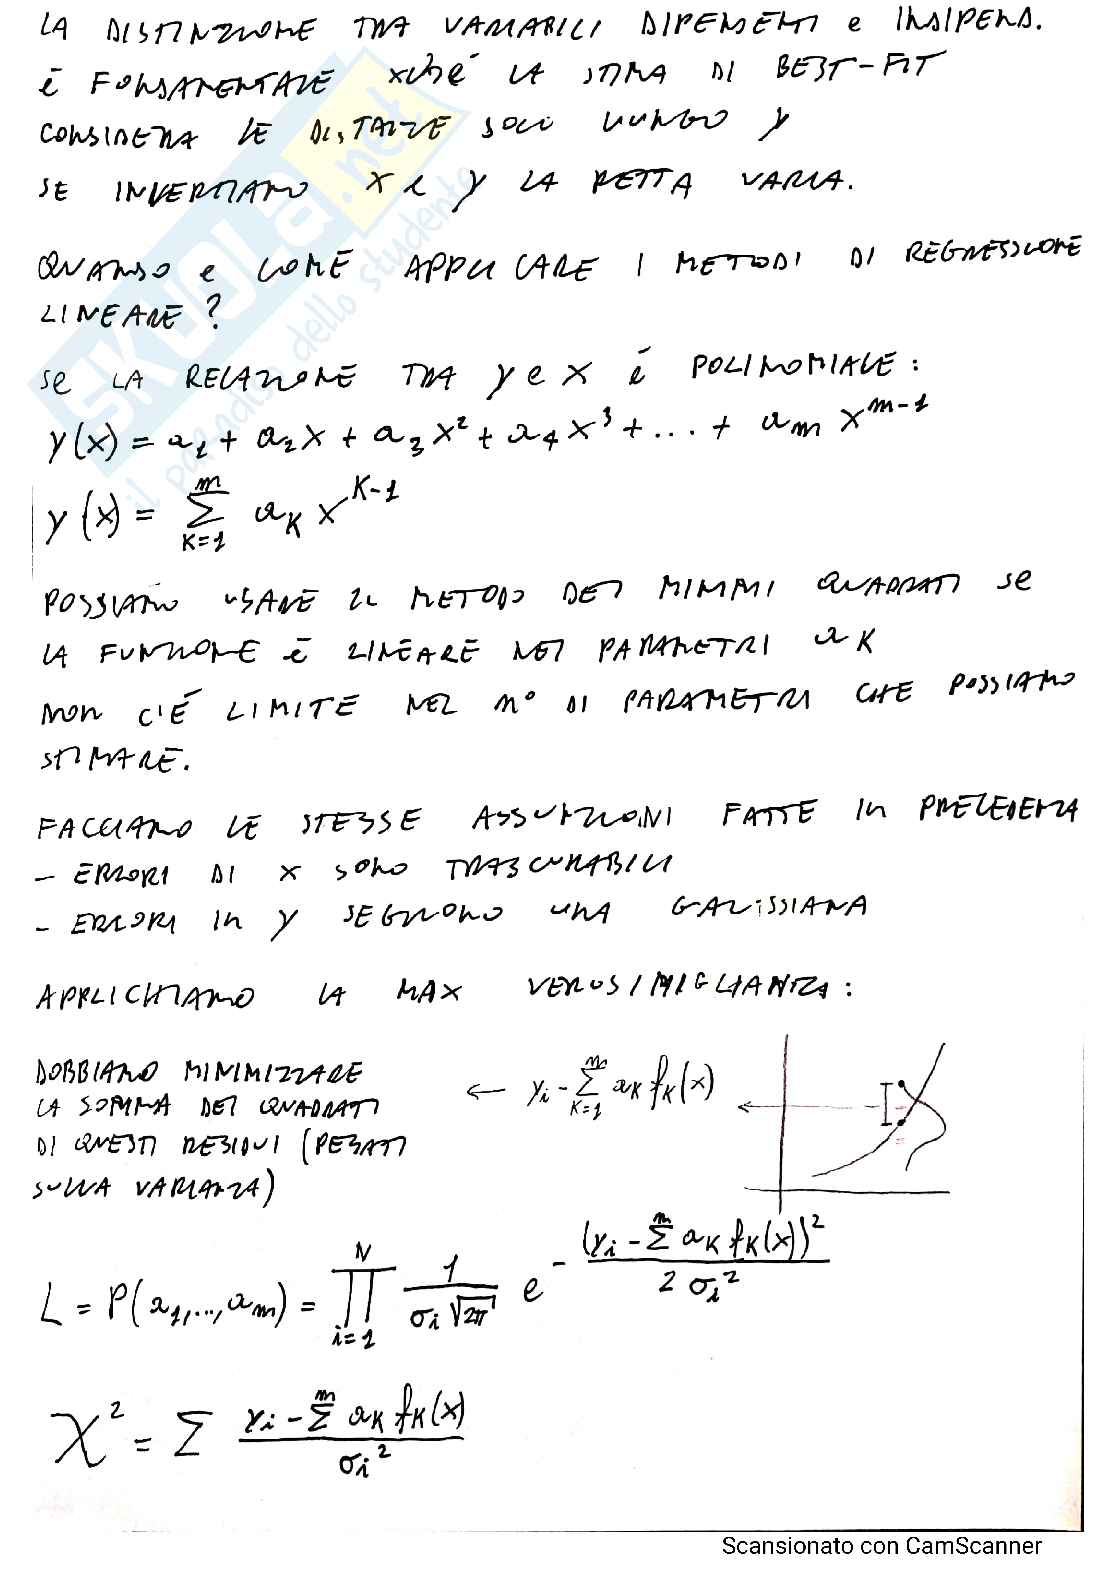 LA DISTINZIONE TRA VARIABILI DIPENDENTI e INDIPEND.
È FONDAMENTALE xché LA STIMA DI BEST-FIT
CONSIDERA LE DISTANZE SOLO LUNGO y
SE INVERTIAMO x e y LA RETTA VARIA.
QUANDO e COME APPLICARE I METODI DI REGRESSIONE
LINEARE?
Se LA RELAZIONE TRA y e x È POLINOMIALE:
y(x) = a₁ + a₂x + a₃x² + a₄x³ + ... + aₘ x^{m-1}
y(x) = Σ_{K=1}^{m} a_K x^{K-1}
POSSIAMO USARE IL METODO DEI MINIMI QUADRATI SE
LA FUNZIONE È LINEARE NEI PARAMETRI a_K
NON C'È LIMITE NEL N° DI PARAMETRI CHE POSSIAMO
STIMARE.
FACCIAMO LE STESSE ASSUNZIONI FATTE IN PRECEDENZA
- ERRORI DI x SONO TRASCURABILI
- ERRORI IN y SEGUONO UNA GAUSSIANA
APPLICHIAMO LA MAX VEROSIMIGLIANZA:
DOBBIAMO MINIMIZZARE
LA SOMMA DEI QUADRATI
DI QUESTI RESIDUI (PESATI
SULLA VARIANZA)
← yᵢ - Σ_{K=1}^{m} a_K f_K(x)
L = P(a₁,...,aₘ) = ∏_{i=1}^{N} 1/(σᵢ√2π) e^{-(yᵢ - Σ^{m} a_K f_K(x))²/2σᵢ²}
χ² = Σ (yᵢ - Σ^{m} a_K f_K(x))/σᵢ²
SKUOLA.net
il paradiso dello studente
Scansionato con CamScanner